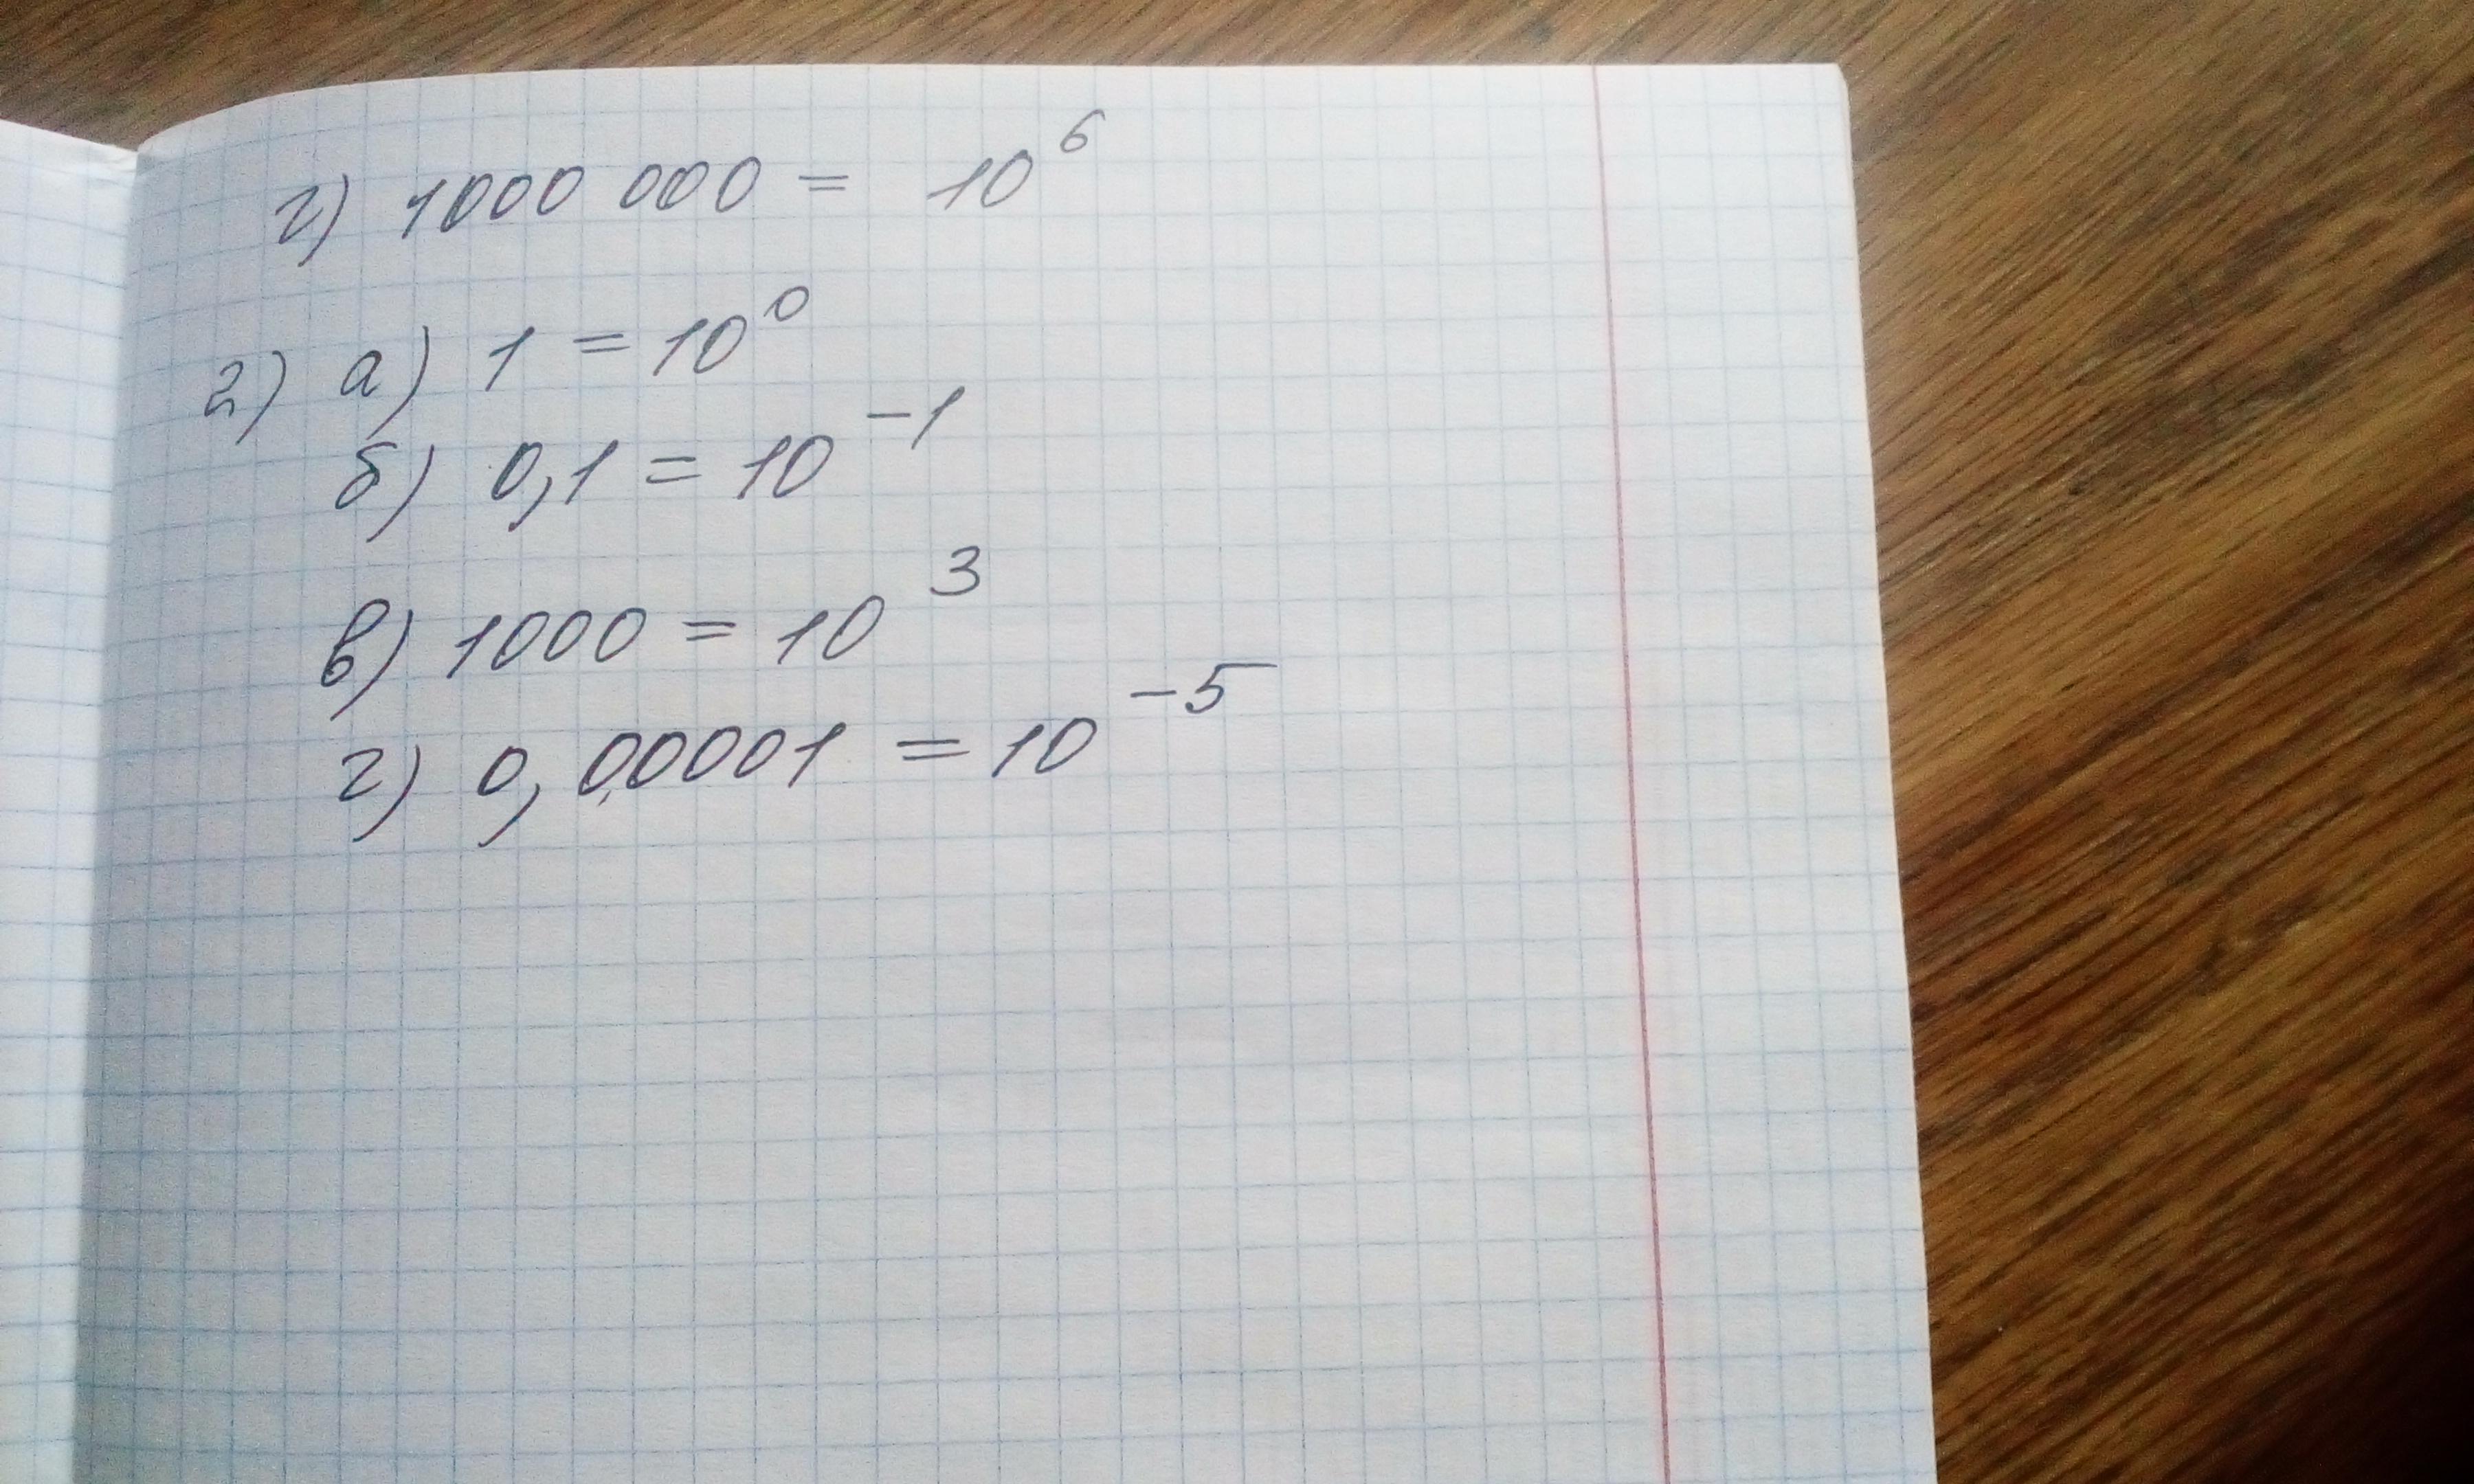 г) 1000 000 = 10⁶
2) а) 1 = 10⁰
б) 0,1 = 10⁻¹
в) 1000 = 10³
г) 0,00001 = 10⁻⁵